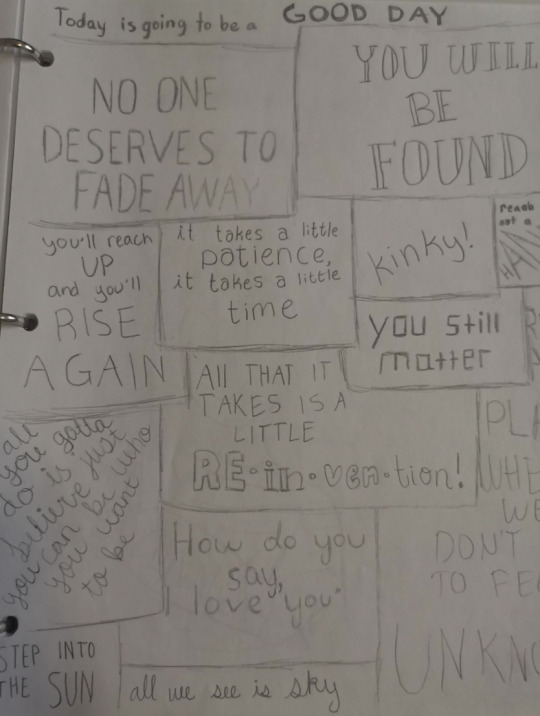 Today is going to be a GOOD DAY
NO ONE
DESERVES TO
FADE AWAY
YOU WILL
BE
FOUND
you'll reach
UP
and you'll
RISE
AGAIN
it takes a little
patience,
it takes a little
time
kinky!
reach
out a
HAN
you still
matter
All THAT IT
TAKES IS A
LITTLE
RE·in·ven·tion!
all
you gotta
do is
believe just
you can be who
you want
to be
How do you
say,
I love you"
PLA
WHE
WE
DON'T
TO FE
UNKNO
STEP INTO
THE SUN
all we see is sky